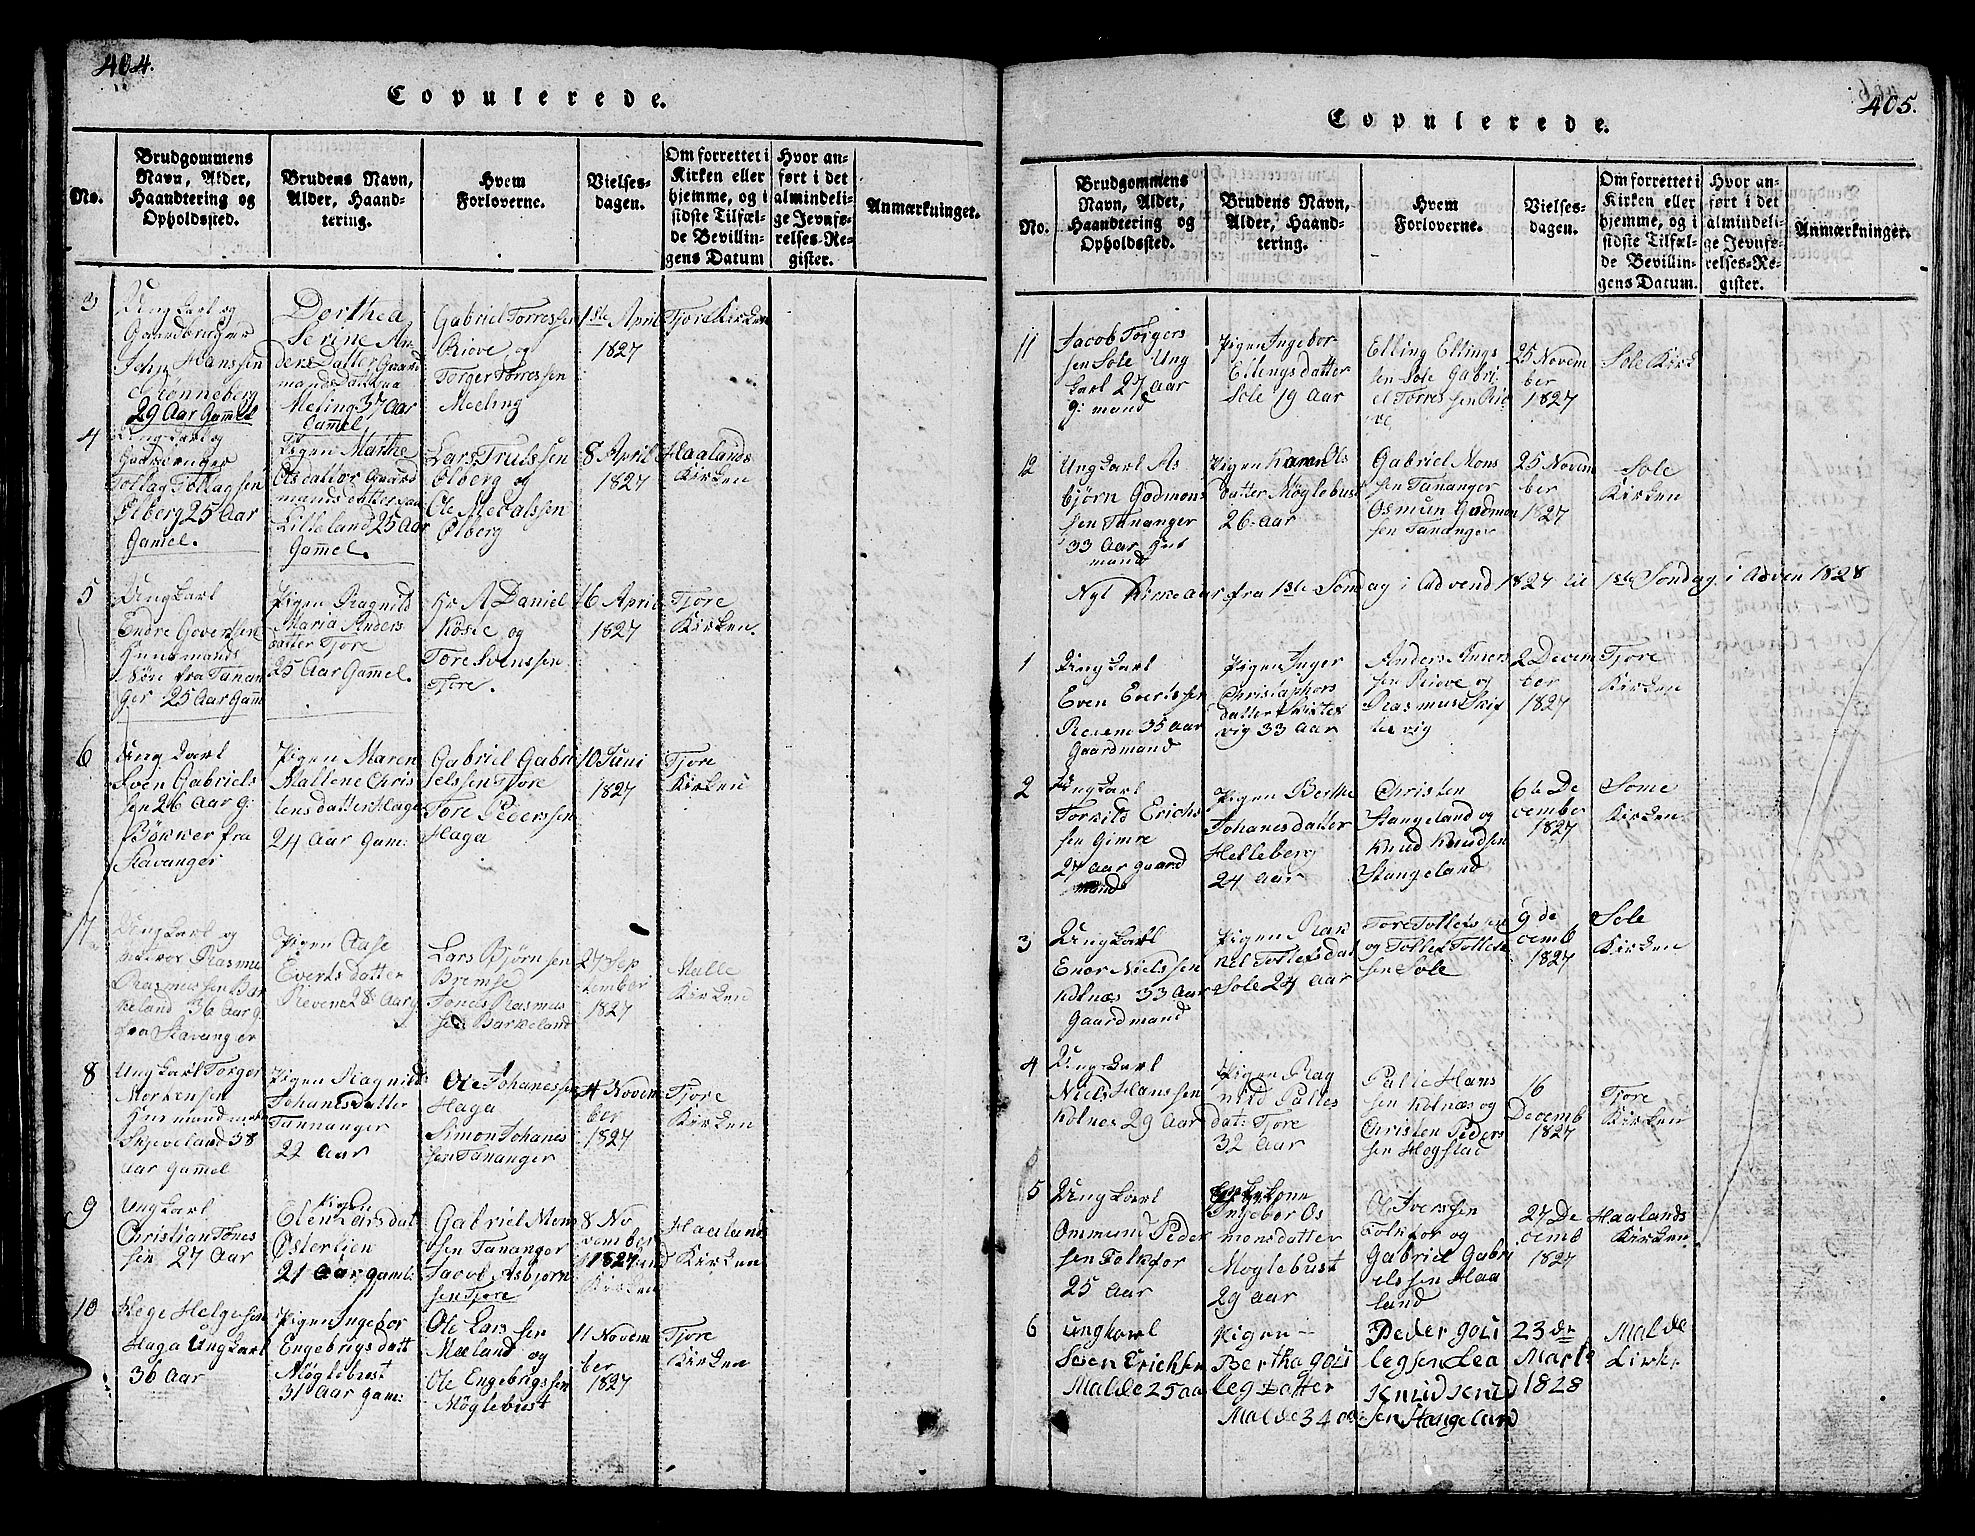 404.
Copulerede.
No.
Brudgommens Navn, Alder, Haandtering og Opholdssted.
Brudens Navn, Alder, Haandtering.
Hvem Forloverne.
Vielsesdagen.
Om forrettet i Kirken eller hjemme, og i sidste Tilfælde Bevillingens Datum
Hvor anført i det almindelige Jevnførelses-Register.
Anmærkninger.
3
Ung Karl og
Gaardbruger
John Hanssen
Rønneberg
29 Aar Gamel
Dorthea
Serine An
ders Datter Gaard
mands Datter paa
Meling 37 Aar
Gamel
Gabriel Torressen
Risve og
Torger Torressen
Meeling
1ste April
1827
Tjora Kirken
4
Ung Karl og
Tollag Tollagsen
Ølberg 25 Aar
Gamel.
Pigen Marthe
Ols dattor Gaard
mands datter paa
Lilleland 25 Aar
Gamel.
Lars Trulssen
Ølberg og
Ole Medalssen
Ølberg
8 April
1827
Haalands
Kirken
5
Ung Karl
Endre Goversen
Huusmands
Søn fra Tanan
ger 25 Aar Gaml
Pigen Ragnild
Maria Anders
datter Tjore
25 Aar Gamel.
Hr A Daniel
Køsie og
Tore Svenssen
Tjore.
16 April
1827
Tjore
Kirken.
6
Ung Karl
Sven Gabriels
sen 26 Aar g:
Bøkker fra
Stavanger
Pigen Maren
Mallene Chris
tens datter Haga
24 Aar Gam:
Gabriel Gabri
elssen Tjore
Tore Pederssen
Haga
10 Juni
1827
Tjore
Kirken
7
Ung Karl og
Rasmus
Rasmussen Bar
keland 36 Aar g
fra Stavanger
Pigen Aase
Everts datter
Reven 28 Aar g
Lars Bjørnsen
Bremse
Tones Rasmus
sen Barkeland
27 Sep
tember
1827
Malle
Kirken
8
Ung Karl Torger
Mortensen
Skjeveland 38
Aar Gamel
Pigen Ragnild
Johanes datter
Tannanger
22 Aar
Ole Johanessen
Haga
Simon Johanes
sen Tananger
4 Novem
ber
1827
Tjore
Kirken
9
Ung Karl
Christian Tønes
sen 27 Aar
Pigen
Elen Larsdat
Østerlien
21 Aar gaml.
Gabriel Mons
sen Tananger
Jacob Asbjørn
sen Tjore
8 No
vember
1827
Haaland
Kirken
10
Hege Helgesen
Haga Ung Karl
36 Aar
Pigen Ingebor
Engebrigs datt
Møglebust
31 Aar gam:
Ole Lars sen
Mæland og
Ole Engebrigssen
Møglebust
11 Novem
ber
1827
Tjore
Kirken
405.
Copulerede.
No.
Brudgommens Navn, Alder, Haandtering og Opholdssted.
Brudens Navn, Alder, Haandtering.
Hvem Forloverne.
Vielsesdagen.
Om forrettet i Kirken eller hjemme, og i sidste Tilfælde Bevillingens Datum.
Hvor anført i det almindelige Jevnførelses-Register.
Anmærkninger.
11
Jacob Torgers
sen Sole Ung
Karl 27 Aar
g: mand
Pigen Ingebor
Ellengsdatter
Sole 19 Aar
Elling Ellings
sen Sole Gabri
el Torressen Ris
ve
25 Novem
ber
1827
Sole Kirk
12
Ung Karl As
bjørn Godmons
sen Tananger
33 Aar Hus
mand
Pigen Karen Ols
datter Møglebust
26 Aar
Gabriel Mons
sen Tananger
Osmun Godmon
sen Tananger
25 Novem
ber
1827
Sole
Kirken
Nyt Kirkeaar fra 1ste Søndag i Advend 1827 til 1ste Søndag i Adven 1828
1
Ung Karl
Even Evertssen
Reven 35 Aar
Gaardmand
Pigen Inger
Christophors
datter Skiftes
vig 33 Aar
Anders Anders
sen Risve og
Rasmus Skif
tesvig
2 Decem
ber
1827
Tjore
Kirken
2
Ung Karl
Torkild Erichs
sen Gimre
27 Aar Gaard
mand
Pigen Berthe
Johanesdatter
Helleberg
24 Aar
Christen
Stangeland og
Knud Knudsen
Stangeland
6te De
cember
1827
Some
Kirken
3
Ung Karl
Enor Nielssen
Kolnæs 33 Aar
Gaardmand
Pigen Rak
nel Tollefsdat
Sole 24 Aar
Tore Tollefssen
og Tollef Tollefs
sen Sole
9 de
cemb
1827
Sole
Kirken
4
Ung Karl
Niels Hanssen
Kolnes 29 Aar
Pigen Rag
nild Palles
dat: Tjore
32 Aar
Palle Hans
sen Kolnæs og
Christen Peders
sen Hogstad
16
Decemb
1827
Tjore
Kirken
5
Ung Karl
Ommund Peder
sen Folkfor
25 Aar
Ingebor Os
monsdatter
Møglebust
29 Aar
Ole Iverssen
Folkfor og
Gabriel Gabri
elssen Haa
land
27 De
cemb
1827
Haalands
Kirken
6
ung karl
Sven Erichsen
Malde 25 aa
Pigen
Bertha Gou
leg Datter
Malde 34 aa
Peder Gou
legsen Lea
Knud Knud
sen Stangeland
23 de
Marts
1828
Malde
Kirke